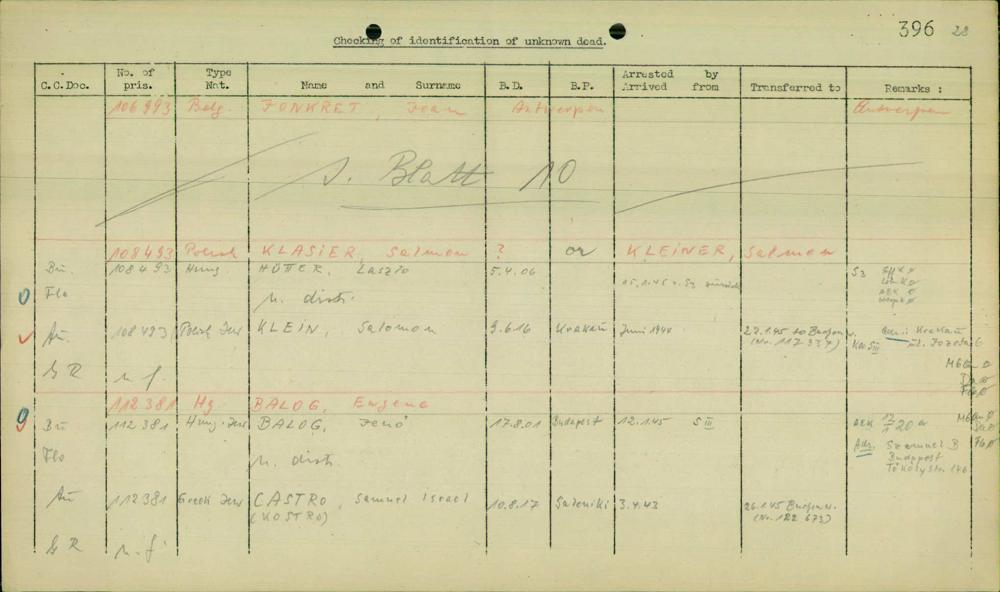 396 28
Checking of identification of unknown dead.
C.C.Doc. No. of pris. Type Nat. Name and Surname B.D. B.P. Arrested by Arrived from Transferred to Remarks :
106993 Belg. JONKRET, Jean Antwerpen Antwerpen
s. Blatt 10
108493 Polish KLASIER, Salmon ? or KLEINER, Salmon
Bu. 108493 Hung. HÜTTER, Laszlo 5.4.06 15.1.45 v. S3 S3
0 Flo n. distr.
Au. 108493 Polish Jew KLEIN, Salomon 9.6.16 Krakau Juni 1940 27.1.45 to Buchenw. Krakau
(No. 117337) KM SIII ul. Jozefa 6
GR n. f.
112381 Hg. BALOG, Eugene
9 Bu 112381 Hung. Jew BALOG, Jenö 17.8.01 Budapest 12.1.45 SIII AEK 12/1 20
Adr. Szamuel B
Flo n. distr. Budapest
Tököly str. 146
Au 112381 Greek Jew CASTRO, Samuel Israel 10.8.17 Saloniki 3.4.43 26.1.45 Buchenw.
(KOSTRO) (No. 122 673)
GR n. f.